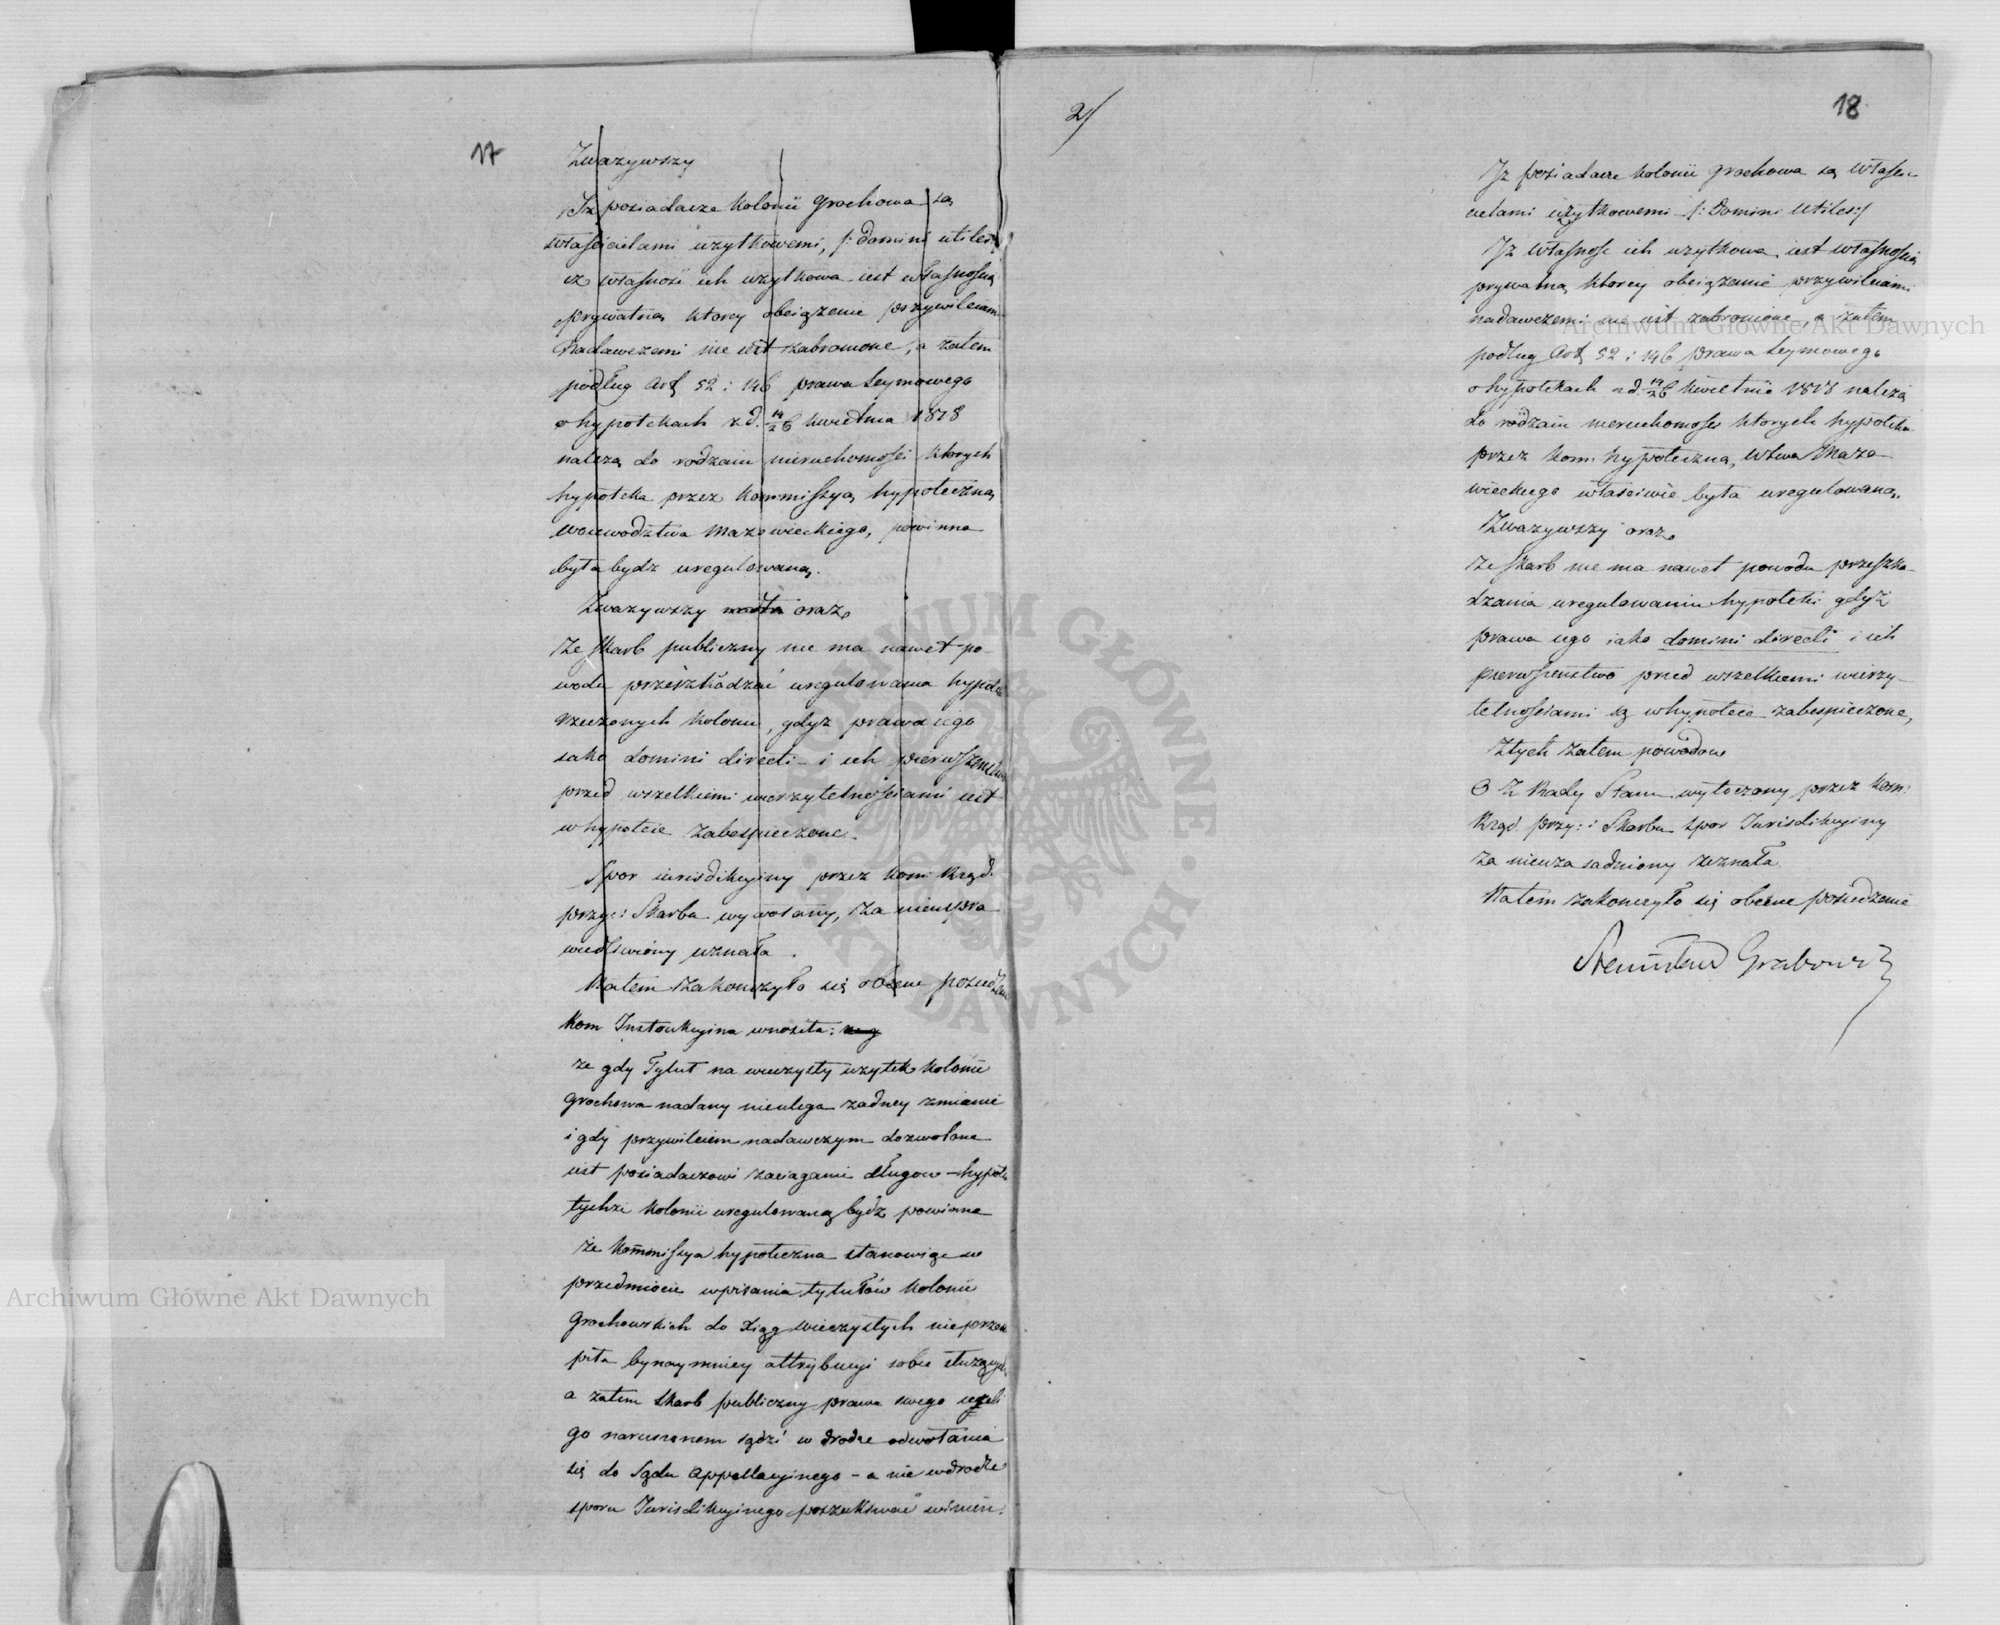 17
Zwazywszy
Iz posiadacze Kolonii Grochowa są
własccielami uzytkowemi, /: domini utiles
iz własnosc ich uzytkowa iest własnoscią
prywatną ktorey obciązenie przywileiami
nadawczemi nie iest zabronione, a zatem
podług Art 52 i 146 prawa Seymowego
o hypotekach z d. 14/26 kwietnia 1818
nalezą do rodzaiu nieruchomosci ktorych
hypoteka przez Kommissyą hypoteczną
Woiewodztwa Mazowieckiego, powinna
była bydz uregulowaną.
Zwazywszy oraz
Ze Skarb publiczny nie ma nawet po-
wodu przeszkadzać uregulowania hypotek
rzeczonych Kolonii, gdyz prawa iego
iako domini directi - i ich pierwszenstwo
przed wszelkiemi wierzytelnosciami iest
w hypotece zabespieczone.
Spor iurisdikcyiny przez Kom: Rząd.
przy: i Skarbu wywołany, za nieuspra
wiedliwiony uznała.
Natem zakonczyło się obecne posiedzenie
Kom Instrukcyina wnosiła:
ze gdy Tytuł na wieczysty uzytek Kolonii
Grochowa nadany nieulega zadney zmianie
i gdy przywileiem nadawczym dozwolone
iest posiadaczowi zaciaganie długow - hypoteka
tychze Kolonii uregulowaną bydz powinna
że Kommissya hypoteczna stanowiąc w
przedmiocie wpisania tytułów Kolonii
Grochowskich do Xiąg wieczystych nieprzestą
piła bynaymniey attrybucyi sobie służących
a zatem Skarb publiczny prawa swego iezeli
go naruszonem sądzi w drodze odwołania
się do Sądu Appellacyinego - a nie w drodze
sporu Jurisdikcyinego poszukiwać winien.
2/
18
Iz posiadacze Kolonii Grochowa są Własci-
cielami uzytkowemi /: Domini Utiles:/
Iz Własnosc ich uzytkowa iest własnoscią
prywatną ktorey obciązenie przywileiami
nadawczemi nie iest zabronione, a zatem
podług Art 52 i 146 prawa Seymowego
o hypotekach z d. 14/26 Kwietnia 1818 nalezą
do rodzaiu nieruchomosci ktorych hypoteka
przez Kom. hypoteczną Wtwa Mazo-
wieckiego właściwie była uregulowaną.
Zwazywszy oraz
ze Skarb nie ma nawet powodu przeszka-
dzania uregulowaniu hypoteki gdyż
prawa iego iako domini directi i ich
pierwszenstwo przed wszelkiemi wierzy-
telnosciami są w hypotece zabespieczone,
Ztych zatem powodow
O. Z. Rady Stanu wytoczony przez Kom:
Rząd: przy: i Skarbu spor Jurisdikcyiny
za nieuzasadniony uznała.
Natem zakonczyło się obecne posiedzenie
Stanisław Grabowski
Archiwum Główne Akt Dawnych
Archiwum Główne Akt Dawnych
ARCHIWUM GŁÓWNE · AKT DAWNYCH ·